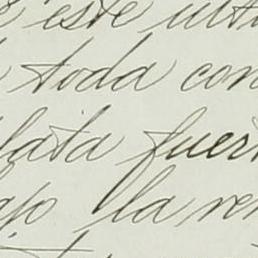 este ulti
toda con
lata fuer
ajo la ren